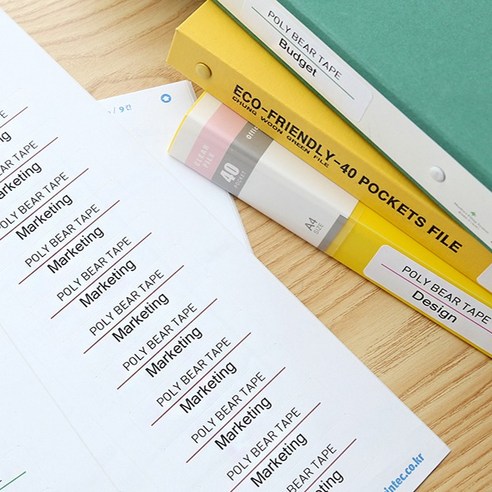 POLY BEAR TAPE
Budget
ECO-FRIENDLY-40 POCKETS FILE
CHUNG WOON GREEN FILE
CLEAR FILE
40
POCKET
A4
SIZE
POLY BEAR TAPE
Design
Marketing
POLY BEAR TAPE
Marketing
POLY BEAR TAPE
Marketing
POLY BEAR TAPE
Marketing
POLY BEAR TAPE
Marketing
POLY BEAR TAPE
Marketing
POLY BEAR TAPE
Marketing
POLY BEAR TAPE
Marketing
POLY BEAR TAPE
Marketing
POLY BEAR TAPE
Marketing
intec.co.kr